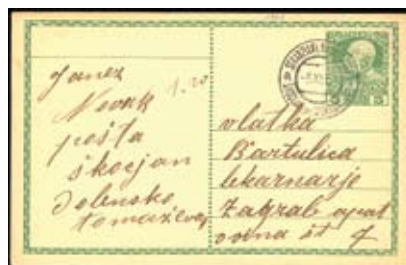 Janez
Novak
pošta
škocjan
Dolensko
tomaževa
1.20
5 5
vlatka
Bartulica
lekarnarje
Zagrab opat
ovina št 7